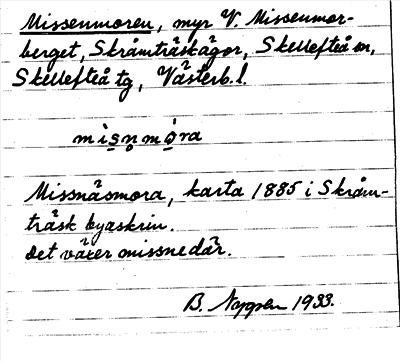 Missenmoren, myr V. Missenmor-
berget, Skråmträskägor, Skellefteå sn,
Skellefteå tg, Västerb. l.
mìsn̥mó̱ra
Missnäsmora, karta 1885 i Skråm-
träsk byaskrin.
Det växer missne där.
B. 1933.